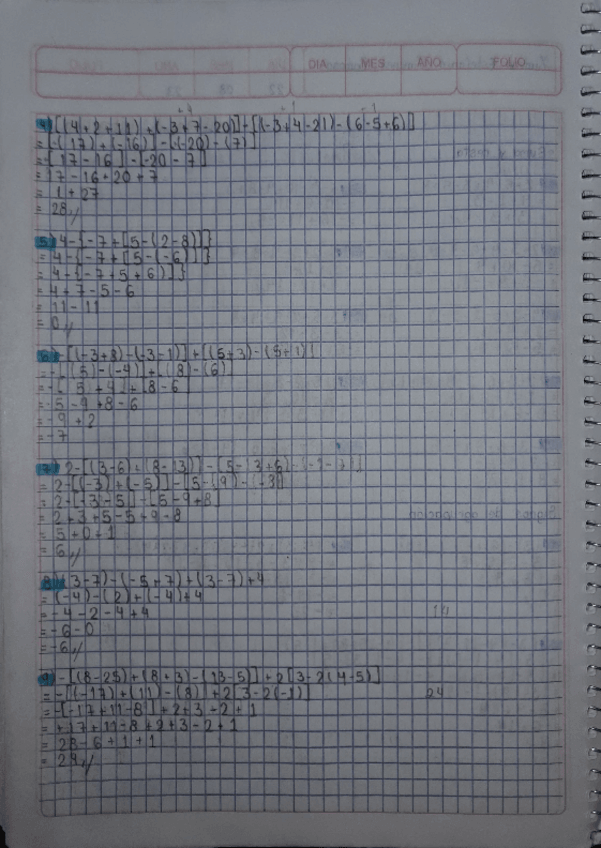 DIA MES AÑO FOLIO
+4 +1 -1
4) [(4+2+11)+(-3+7-20)]-[(-3+4-21)-(6-5+6)]
=[(17)+(-16)]-[(-20)-(7)]
=[17-16]-[-20-7]
=17-16+20+7
=1+27
=28//
5) 4-{-7+[5-(2-8)]}
=4-{-7+[5-(-6)]}
=4-{-7+5+6)]}
=4+7-5-6
=11-11
=0//
6) -[(-3+8)-(-3-1)]+[(5+3)-(5+1)]
=-[(5)-(-4)]+[(8)-(6)]
=-[5+4]+[8-6]
=-5-4+8-6
=-9+2
=-7
7) 2-[(3-6)+(8-13)]-[5-(3+6)-(-1-7)]
=2-[(-3)+(-5)]-[5-(9)-(-8)]
=2-[-3-5]-[5-9+8]
=2+3+5-5+9-8
=5+0+1
=6//
8) (3-7)-(-5+7)+(3-7)+4
=(-4)-(2)+(-4)+4
=-4-2-4+4
=-6-0
=-6//
9) -[(8-25)+(8+3)-(13-5)]+2[3-2(4-5)]
=-[(-17)+(11)-(8)]+2[3-2(-1)] 24
=-[-17+11-8]+2+3-2+1
=+17+11-8+2+3-2+1
=28-6+1+1
=24//